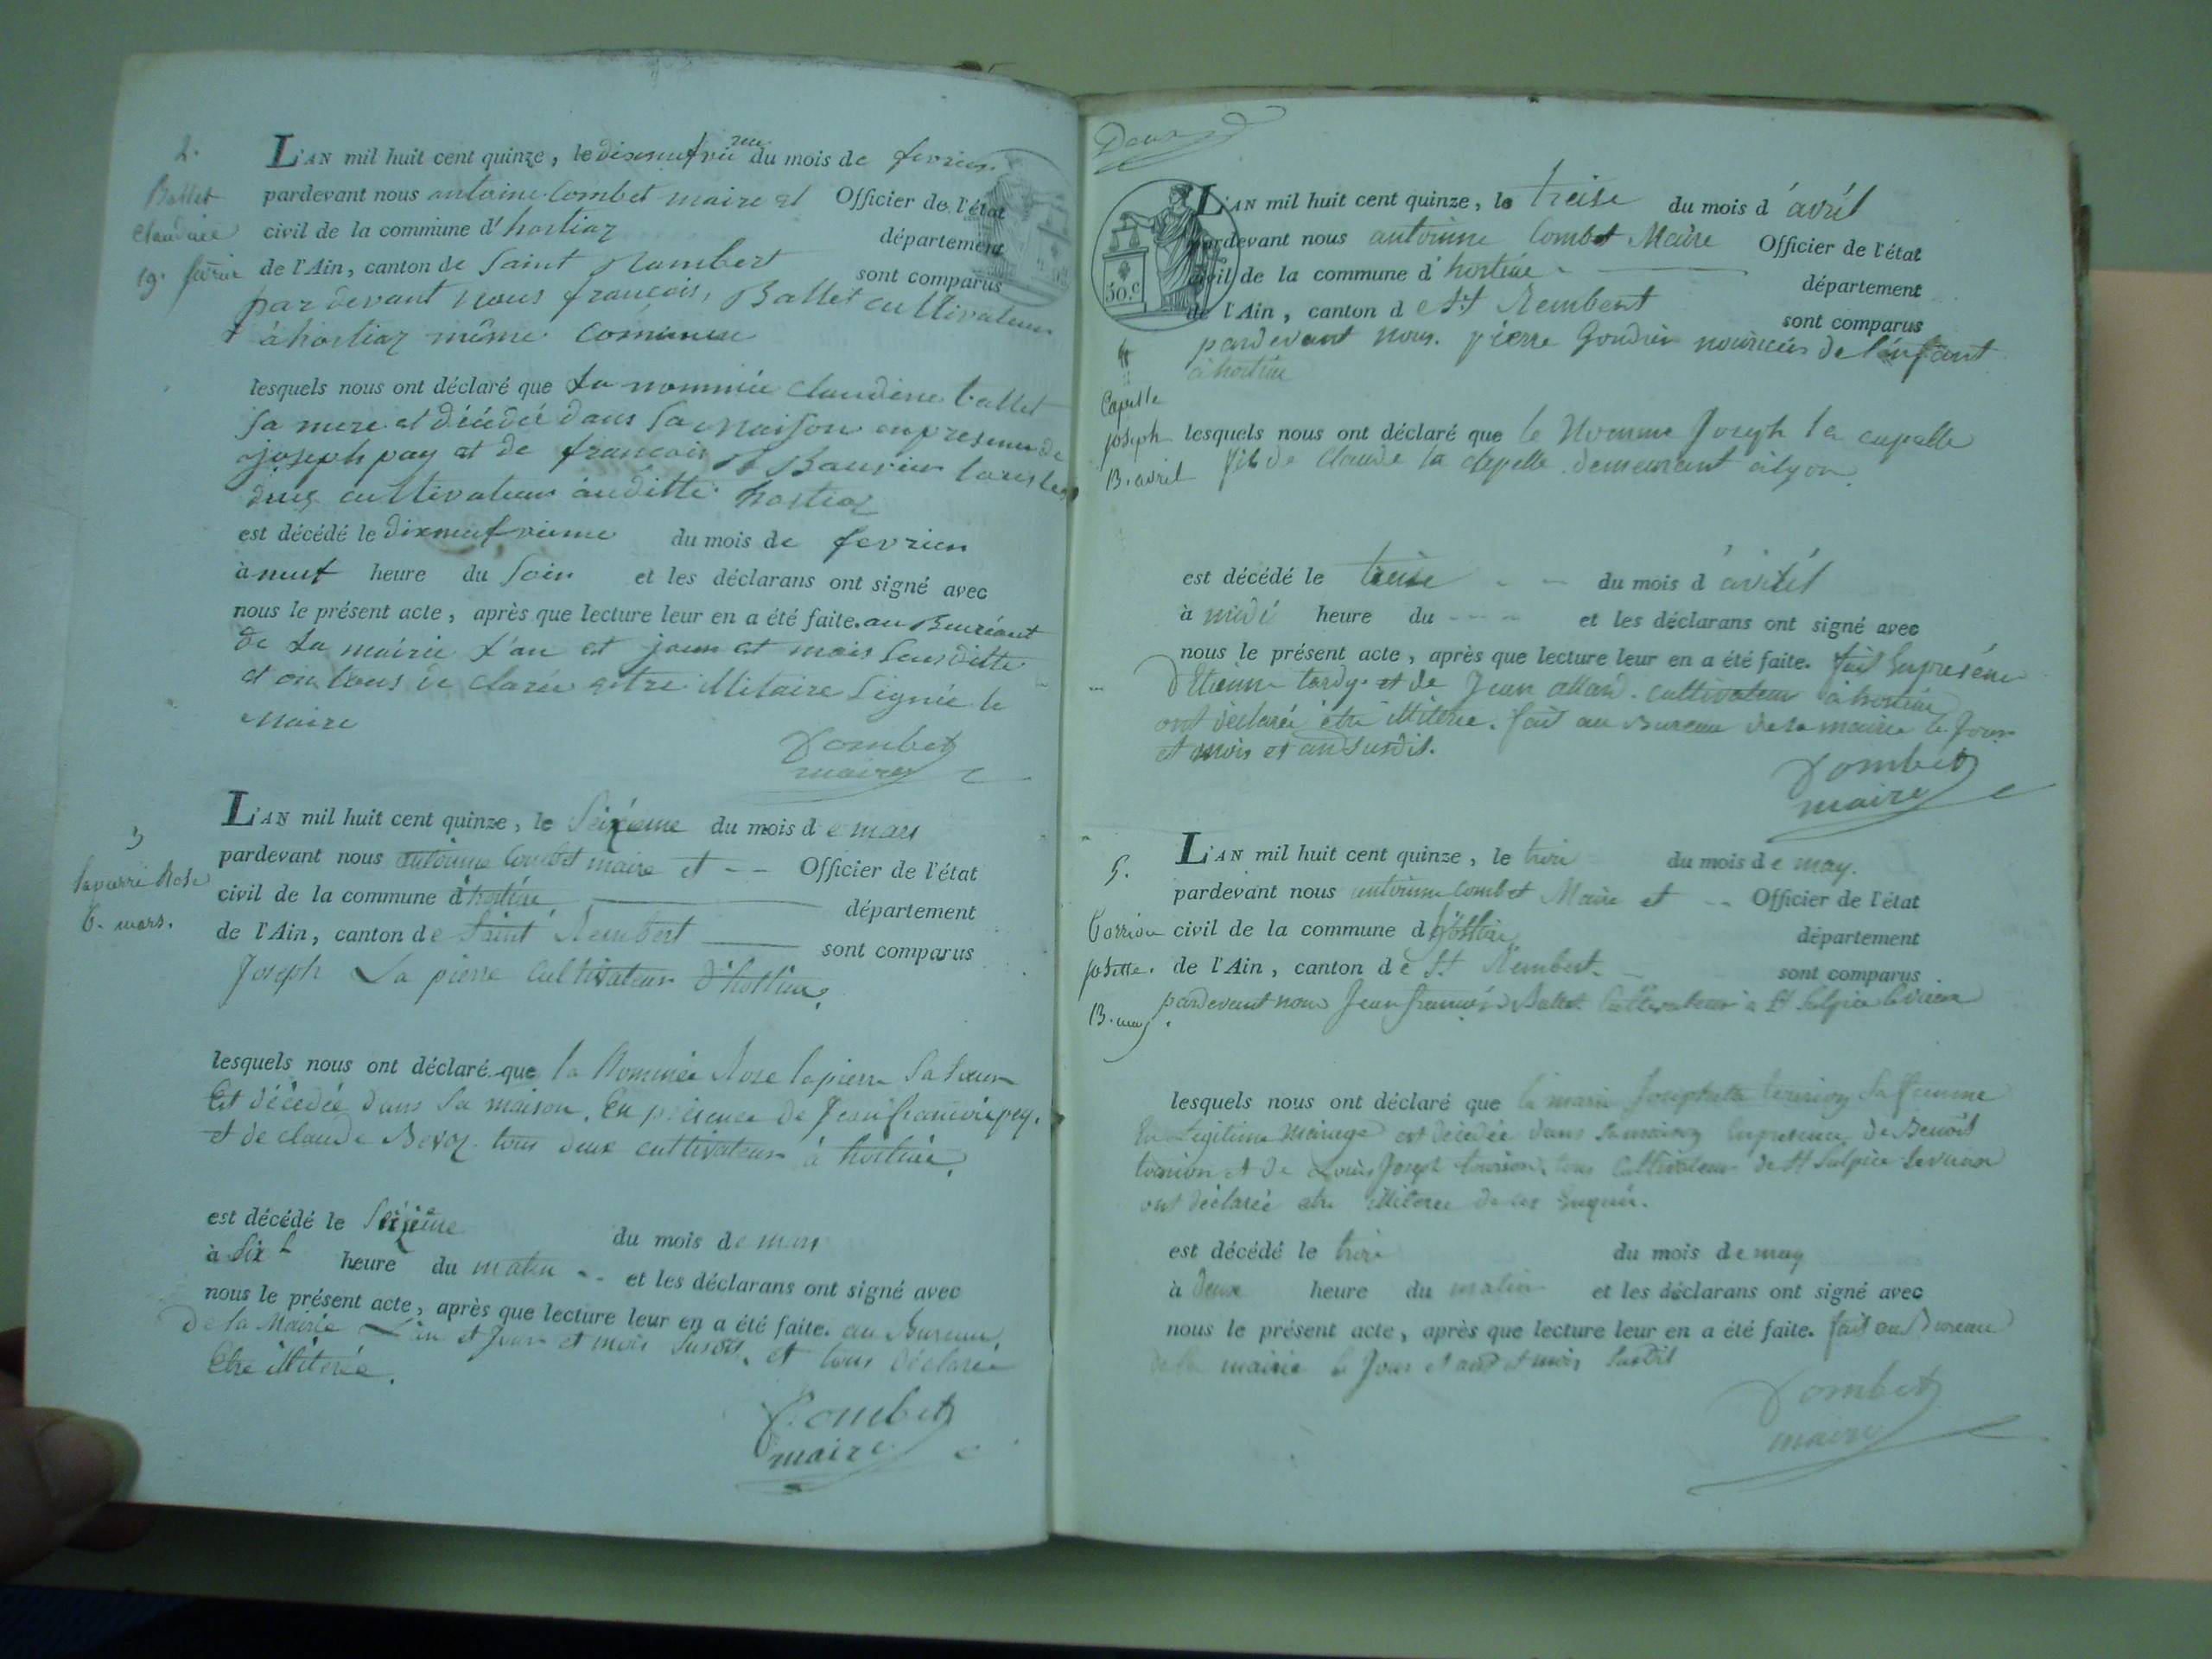 2.
Ballet
Claudine
19. fevrier
L'AN mil huit cent quinze, le dixneufvieme du mois de fevrier
pardevant nous antoine Combet maire et Officier de l'état
civil de la commune d'hostiaz département
de l'Ain, canton de Saint Rambert sont comparus
par devant nous francois Ballet cultivateur
à hostiaz même comune
lesquels nous ont déclaré que La nommée Claudine ballet
Sa mere et décédée dans Sa maison en presence de
joseph pay et de francois Baurin tous les
deux cultivateur auditte hostiaz
est décédé le dixneufvieme du mois de fevrier
à neuf heure du Soir et les déclarans ont signé avec
nous le présent acte, après que lecture leur en a été faite. au Bureaut
de La mairie L'an et jour et mois Susditte
et on tous declarée etre illitaire Signée le
Maire
Combet
maire
3
lapierre Rose
6. mars.
L'AN mil huit cent quinze, le Seixeme du mois de mars
pardevant nous antoinne Combet maire et -- Officier de l'état
civil de la commune d'hostiaz département
de l'Ain, canton de Saint Rembert sont comparus
Joseph La pierre Cultivateur d'hostiaz
lesquels nous ont déclaré que la Nommée Rose lapierre Sa Soeur
Est décédée dans Sa maison. En présence de Jean francois pey.
et de claude Bevoz tous deux cultivateur à hostiaz.
est décédé le Seixeme du mois de mars
à Six h heure du matin -- et les déclarans ont signé avec
nous le présent acte, après que lecture leur en a été faite. au Bureau
De la Mairie L'an et Jour et mois Susdit. et tous déclaré
Etre illiterée.
Combet
maire
Deux
L'AN mil huit cent quinze, le treise du mois d'avril
pardevant nous antoinne Combet Maire Officier de l'état
civil de la commune d'hostiaz département
de l'Ain, canton de St Rembert sont comparus
50.c
pardevant nous. pierre Goudier nouricier de l'enfant
à hostiaz
4
Capelle
joseph
13. avril
lesquels nous ont déclaré que le Nomme Joseph la capelle
fils de Claude la Capelle demeurant à lyon.
est décédé le treise -- du mois d'avril
à midi heure du ---- et les déclarans ont signé avec
nous le présent acte, après que lecture leur en a été faite. fait En présence
D'Etienne tardy et de Jean allard. cultivateur à hostiaz
ont déclarée être illiterée. fait au Bureau de la mairie le Jour
et mois et an susdit.
Combet
maire
5.
josette.
13. may
L'AN mil huit cent quinze, le du mois de may.
pardevant nous antoinne Combet Maire et -- Officier de l'état
civil de la commune d'hostiaz département
de l'Ain, canton de St Rembert. sont comparus
pardevant nous Jean francois Ballet Cultivateur à St Sulpice le vieux
lesquels nous ont déclaré que la marie Josephette Sa femme
En Legitime mariage est décédée dans Sa maison En presence de Benoit
et de Louis Joseph tous Cultivateur de St Sulpice le vieux
ont déclarée etre illiterée de les Enquis.
est décédé le du mois de may
à deux heure du matin et les déclarans ont signé avec
nous le présent acte, après que lecture leur en a été faite. fait au Bureau
de la mairie le Jour et an et mois Susdit
Combet
maire